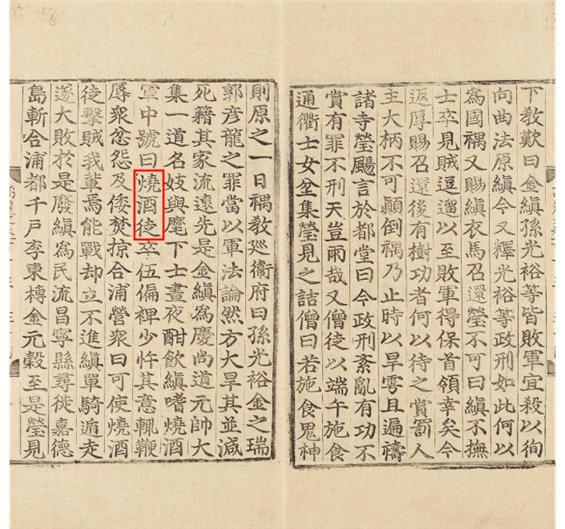 則原之一日禑敎巡衛府曰孫光裕金之瑞
郭彦龍之罪當以軍法論然方大旱其並減
死籍其家流遠先是金縝爲慶尚道元帥大
集一道名妓與麾下士晝夜酣飮縝嗜燒酒
軍中號曰燒酒徒卒伍偏裨少忤其意輒鞭
辱衆忿怨及倭焚掠合浦營衆曰可使燒酒
徒擊賊我輩焉能戰却立不進縝單騎遁走
遂大敗於是廢縝爲民流昌寧縣尋徙嘉德
島斬合浦都千戶李東榑金元穀至是瑩見
下敎歎曰金縝孫光裕等皆敗軍宜殺以徇
向曲法原縝今又釋光裕等政刑如此何以
爲國禑又賜縝衣馬召還瑩不可曰縝不撫
士卒見賊逗遛以至敗軍得保首領幸矣今
返厚賜召還後有樹功者何以待之賞罰人
主大柄不可顚倒禑乃止時以旱雩且遍禱
諸寺瑩颺言於都堂曰今政刑紊亂有功不
賞有罪不刑天豈雨哉又僧徒以端午施食
通衢士女坌集瑩見之詰僧曰若施食鬼神